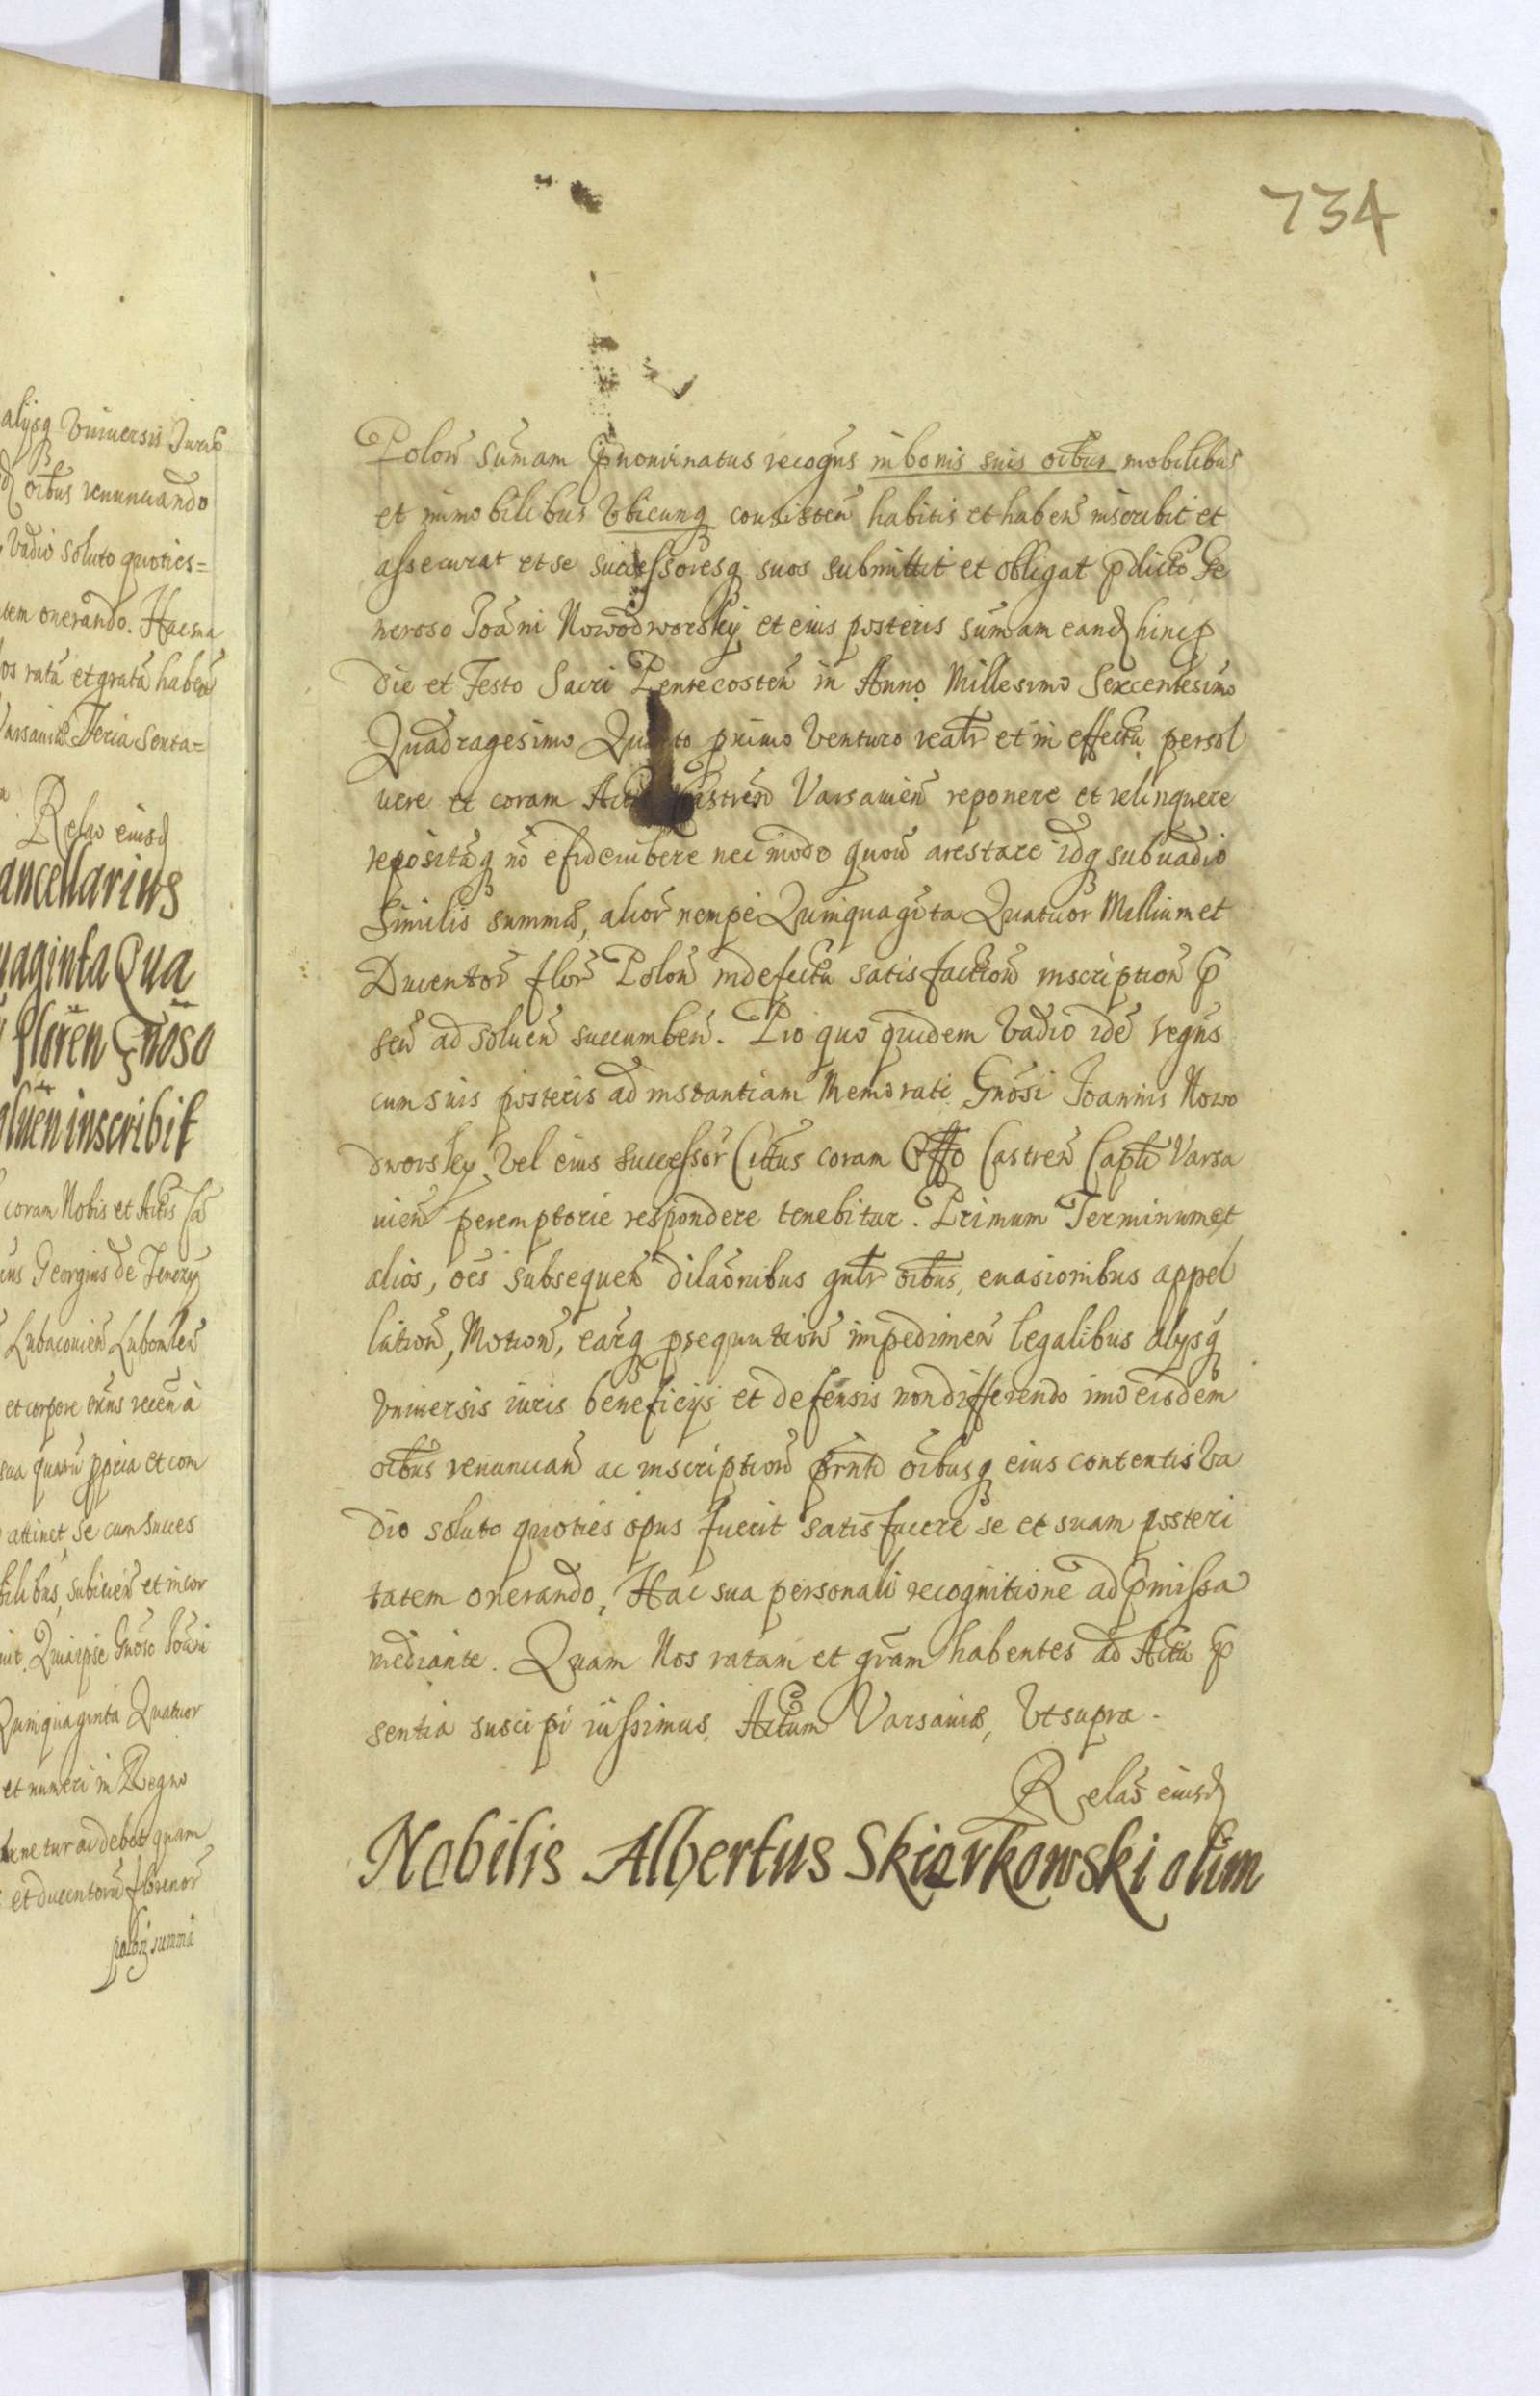 alijsq Vniuersis Juris
oibus renunciando
Vadio soluto quoties=
tem onerando. Hac sua
os ratā et gratā haben̄
Varsauiæ Feria Sexta=
Relao eiusd
ancellarius
uaginta Qua
floren̄ Gnoso
inscribit
coram Nobis et Actis Ca
Georgius de Tenczyn
Lubaczouien̄ Lubomlen̄
et corpore exns recen̄ à
sua quauis ppria et com
attinet, se cum succes
bilibus, subicien̄ et incor
Quia ipse Gnoso Joāni
Quinquaginta Quatuor
et numeri in Regno
tenetur ac debet quam
et ducentorū florenor̄
polon̄ summā
734
Polon̄ sum̄am p̄nominatus recogn̄s in bonis suis oībus mobilibus
et immobilibus Vbicunq consisten̄ habitis et haben̄ inscribit et
assecurat et se successoresq suos submittit et obligat p̄dicto Ge
neroso Joāni Nowodworsky et eius posteris sum̄am eand hinc p
die et Festo Sacri Pentecosten̄ in Anno Millesimo Sexcentesimo
Quadragesimo Quarto primo Venturo realr̄ et in effectu persol
uere et coram Actis Castren̄ Varsauien̄ reponere et relinquere
repositāq nō condescribere nec modo quouis arestare idq sub uadio
similis summæ, alior̄ nempe Quinquagīta Quatuor Millium et
Ducentor̄ flor̄ Polon̄ in defectu satisfaction̄ inscription̄ p̄
sen̄ ad soluen̄ succumben̄. Pro quo quidem Vadio idē regn̄s
cum suis posteris ad instantiam Memorati Gnōsi Joannis Nowo
dworsky Vel eius successor̄ Cittus coram Offo Castren̄ Capli Varsa
uien̄ peremptorie respondere tenebitur. Primum Terminum et
alios, oēs subsequen̄ dilaōnibus gnlr̄ oībus, euasionibus appel
lation̄, Motion̄, earq psequution̄ impedimen̄ legalibus alysq
Vniuersis iuris beneficijs et defensis non differendo imo eisdem
oībus renuncian̄ ac inscription̄ prnti oībusq eius contentis Va
dio soluto quoties opus fuerit satisfacere se et suam posteri
tatem onerando, Hac sua personali recognitione ad p̄missa
mediante. Quam Nos ratam et grām habentes ad Acta p̄
sentia suscipi iussimus. Actum Varsauiæ, Vt supra.
Relaō eiusd
Nobilis Albertus Skiarkowski olim